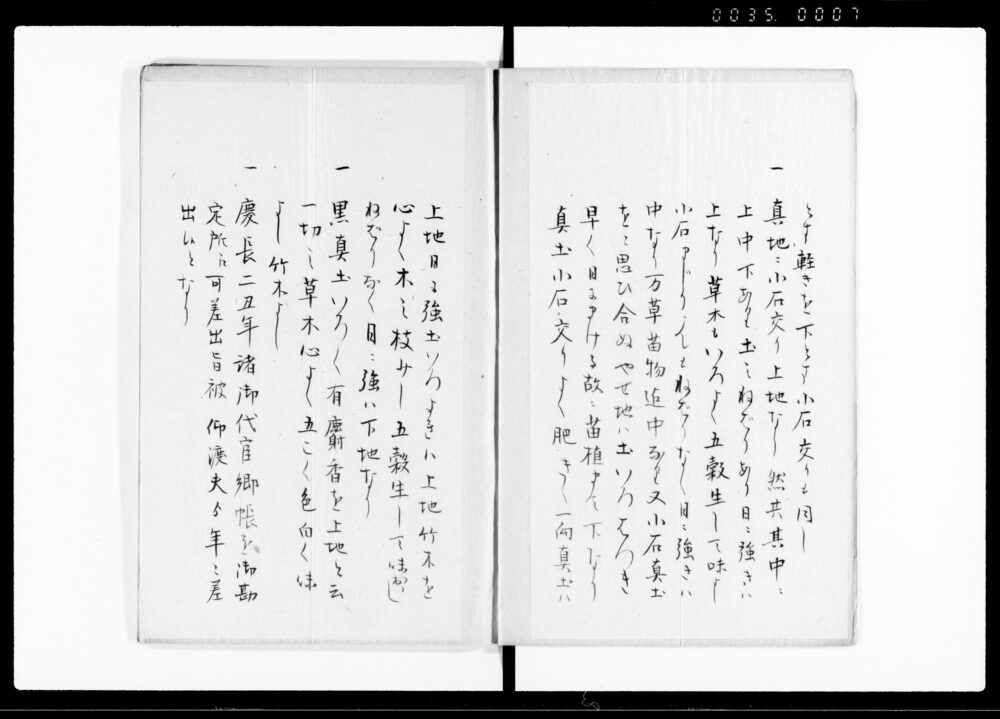 0035 0007
とす軽きを下とす小石交りも同し
一 真地ニ小石交り上地なり 然共其中ニ
上中下あり土ニねばりあり日ニ強きハ
上なり 草木もいろよく五穀生して味よし
小石まじりてもねばりなく日ニ強きハ
中なり万草苗物近中なり又小石真土
をニ思ひ合ぬやせ地ハ土いろ
早く日ニまける故ニ苗植 下なり
真土小石交りよく肥きく一向真土ハ
上地日ニ強土いろよきハ上地竹木を
心よく木之枝 五穀生して味
ねばりなく日ニ強ハ下地なり
一 黒真土いろく有麝香を上地と云
一切之草木心よく五こく色白く味
よし竹木よし
一 慶長二丑年諸御代官郷帳を御勘
定所江可差出旨被 仰渡夫ゟ年々差
出候となり